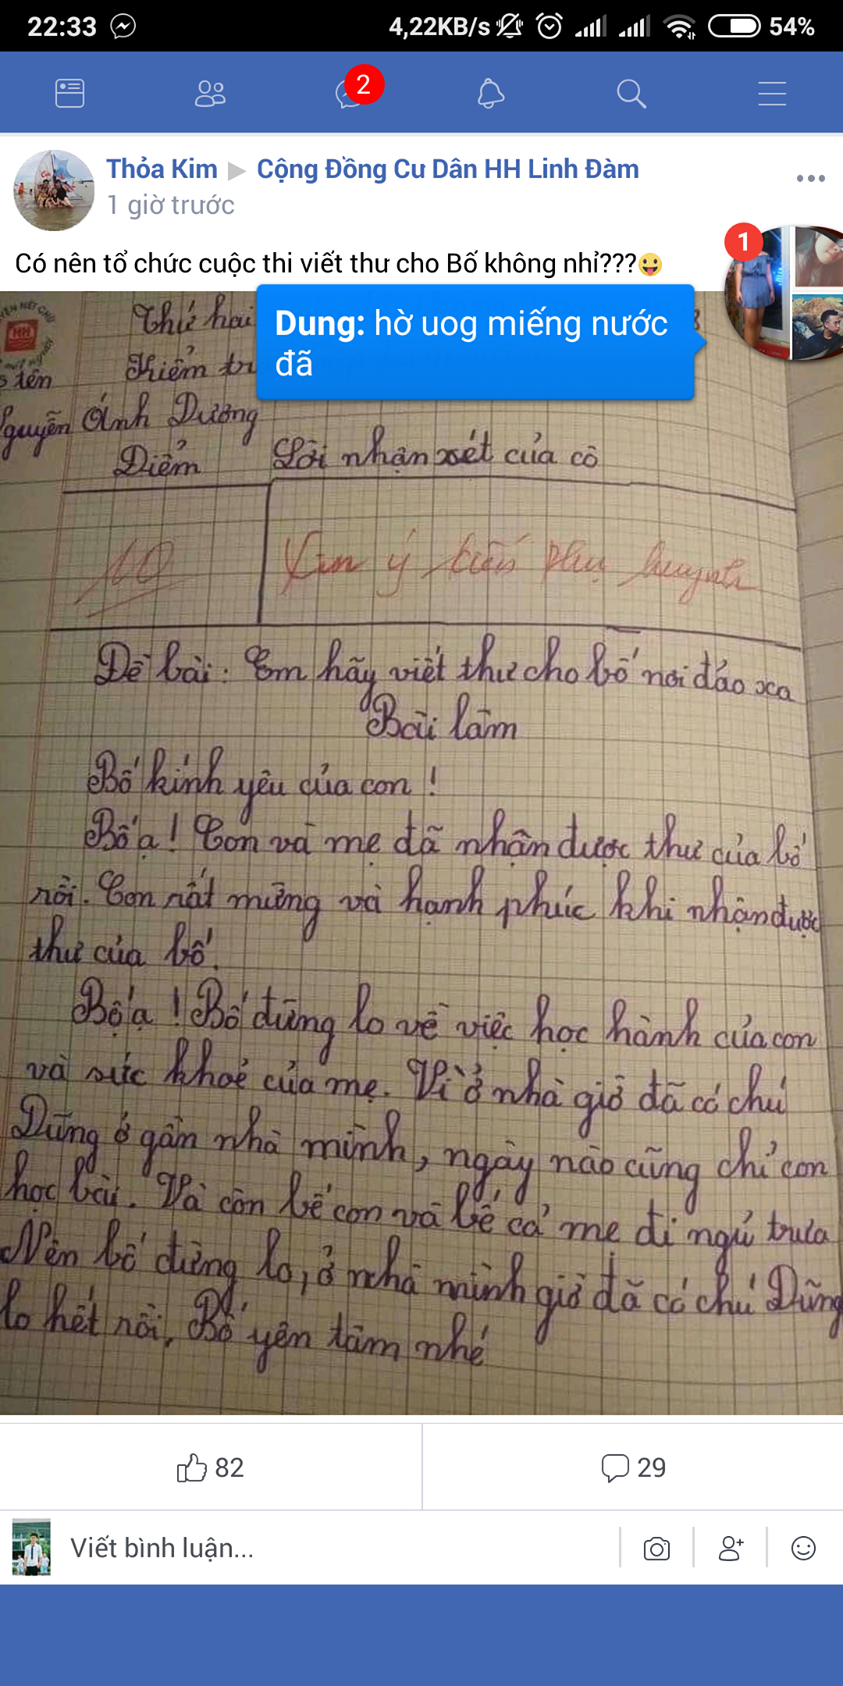 22:33 4,22KB/s 54%
2
Thỏa Kim ▶ Cộng Đồng Cư Dân HH Linh Đàm
1 giờ trước
Có nên tổ chức cuộc thi viết thư cho Bố không nhỉ???😜
1
Dung: hờ uog miếng nước
đã
Thứ hai
HH
Kiểm tr
tên
Nguyễn Ánh Dương
Điểm Lời nhận xét của cô
10 Xin ý kiến phụ huynh
Đề bài: Em hãy viết thư cho bố nơi đảo xa
Bài làm
Bố kính yêu của con!
Bố ạ! Con và mẹ đã nhận được thư của bố
rồi. Con rất mừng và hạnh phúc khi nhận được
thư của bố.
Bố ạ! Bố đừng lo về việc học hành của con
và sức khoẻ của mẹ. Vì ở nhà giờ đã có chú
Dũng ở gần nhà mình, ngày nào cũng chỉ con
học bài. Và còn bế con và bế cả mẹ đi ngủ trưa
Nên bố đừng lo, ở nhà mình giờ đã có chú Dũng
lo hết rồi, Bố yên tâm nhé
82 29
Viết bình luận...